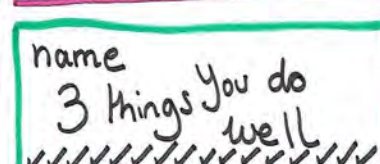 name
3 things you do
well